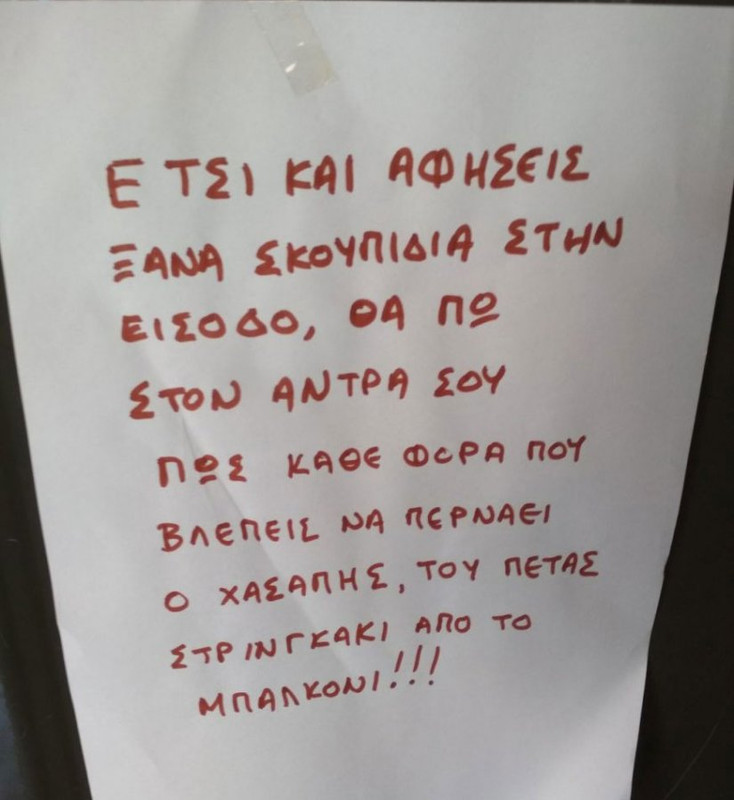 ΕΤΣΙ ΚΑΙ ΑΦΗΣΕΙΣ
ΞΑΝΑ ΣΚΟΥΠΙΔΙΑ ΣΤΗΝ
ΕΙΣΟΔΟ, ΘΑ ΠΩ
ΣΤΟΝ ΑΝΤΡΑ ΣΟΥ
ΠΩΣ ΚΑΘΕ ΦΟΡΑ ΠΟΥ
ΒΛΕΠΕΙΣ ΝΑ ΠΕΡΝΑΕΙ
Ο ΧΑΣΑΠΗΣ, ΤΟΥ ΠΕΤΑΣ
ΣΤΡΙΝΓΚΑΚΙ ΑΠΟ ΤΟ
ΜΠΑΛΚΟΝΙ!!!